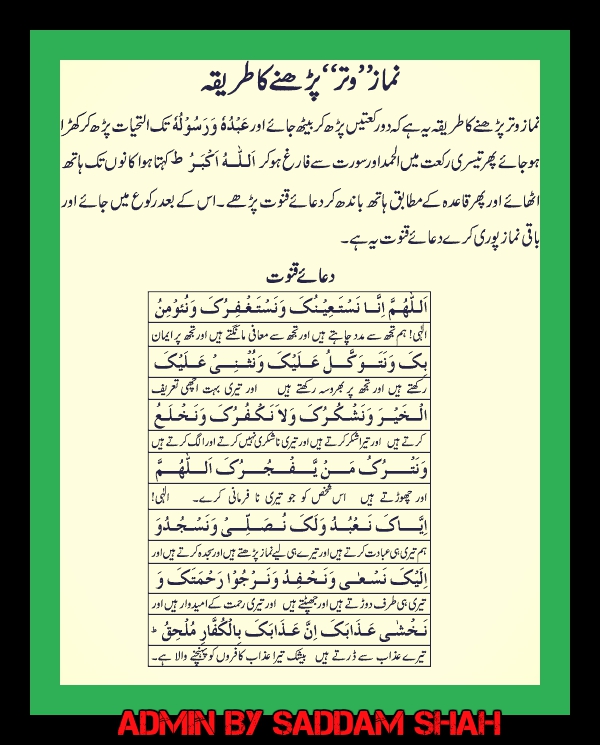 نماز ’’وتر‘‘ پڑھنے کا طریقہ
نماز وتر پڑھنے کا طریقہ یہ ہے کہ دو رکعتیں پڑھ کر بیٹھ جائے اور عَبْدُہٗ وَرَسُوْلُہٗ تک التحیات پڑھ کر کھڑا
ہو جائے پھر تیسری رکعت میں الحمد اور سورت سے فارغ ہو کر اَللہُ اَکْبَرُ ط کہتا ہوا کانوں تک ہاتھ
اٹھائے اور پھر قاعدہ کے مطابق ہاتھ باندھ کر دعائے قنوت پڑھے۔ اس کے بعد رکوع میں جائے اور
باقی نماز پوری کرے دعائے قنوت یہ ہے۔
دعائے قنوت
اَللّٰھُمَّ اِنَّا نَسْتَعِیْنُکَ وَنَسْتَغْفِرُکَ وَنُئْوْمِنُ
الٰہی! ہم تجھ سے مدد چاہتے ہیں اور تجھ سے معافی مانگتے ہیں اور تجھ پر ایمان
بِکَ وَنَتَوَکَّلُ عَلَیْکَ وَنُثْنِیْ عَلَیْکَ
رکھتے ہیں اور تجھ پر بھروسہ رکھتے ہیں اور تیری بہت اچھی تعریف
الْخَیْرَ وَنَشْکُرُکَ وَلَا نَکْفُرُکَ وَنَخْلَعُ
کرتے ہیں اور تیرا شکر کرتے ہیں اور تیری ناشکری نہیں کرتے اور الگ کرتے ہیں
وَنَتْرُکُ مَنْ یَّفْجُرُکَ اَللّٰھُمَّ
اور چھوڑتے ہیں اس شخص کو جو تیری نا فرمانی کرے۔ الٰہی!
اِیَّاکَ نَعْبُدُ وَلَکَ نُصَلِّیْ وَنَسْجُدُ وَ
ہم تیری ہی عبادت کرتے ہیں اور تیرے ہی لیے نماز پڑھتے ہیں اور سجدہ کرتے ہیں اور
اِلَیْکَ نَسْعٰی وَنَحْفِدُ وَنَرْجُوْا رَحْمَتَکَ وَ
تیری ہی طرف دوڑتے ہیں اور جھپٹتے ہیں اور تیری رحمت کے امیدوار ہیں اور
نَخْشٰی عَذَابَکَ اِنَّ عَذَابَکَ بِالْکُفَّارِ مُلْحِقٌ ط
تیرے عذاب سے ڈرتے ہیں بیشک تیرا عذاب کافروں کو پہنچنے والا ہے۔
ADMIN BY SADDAM SHAH